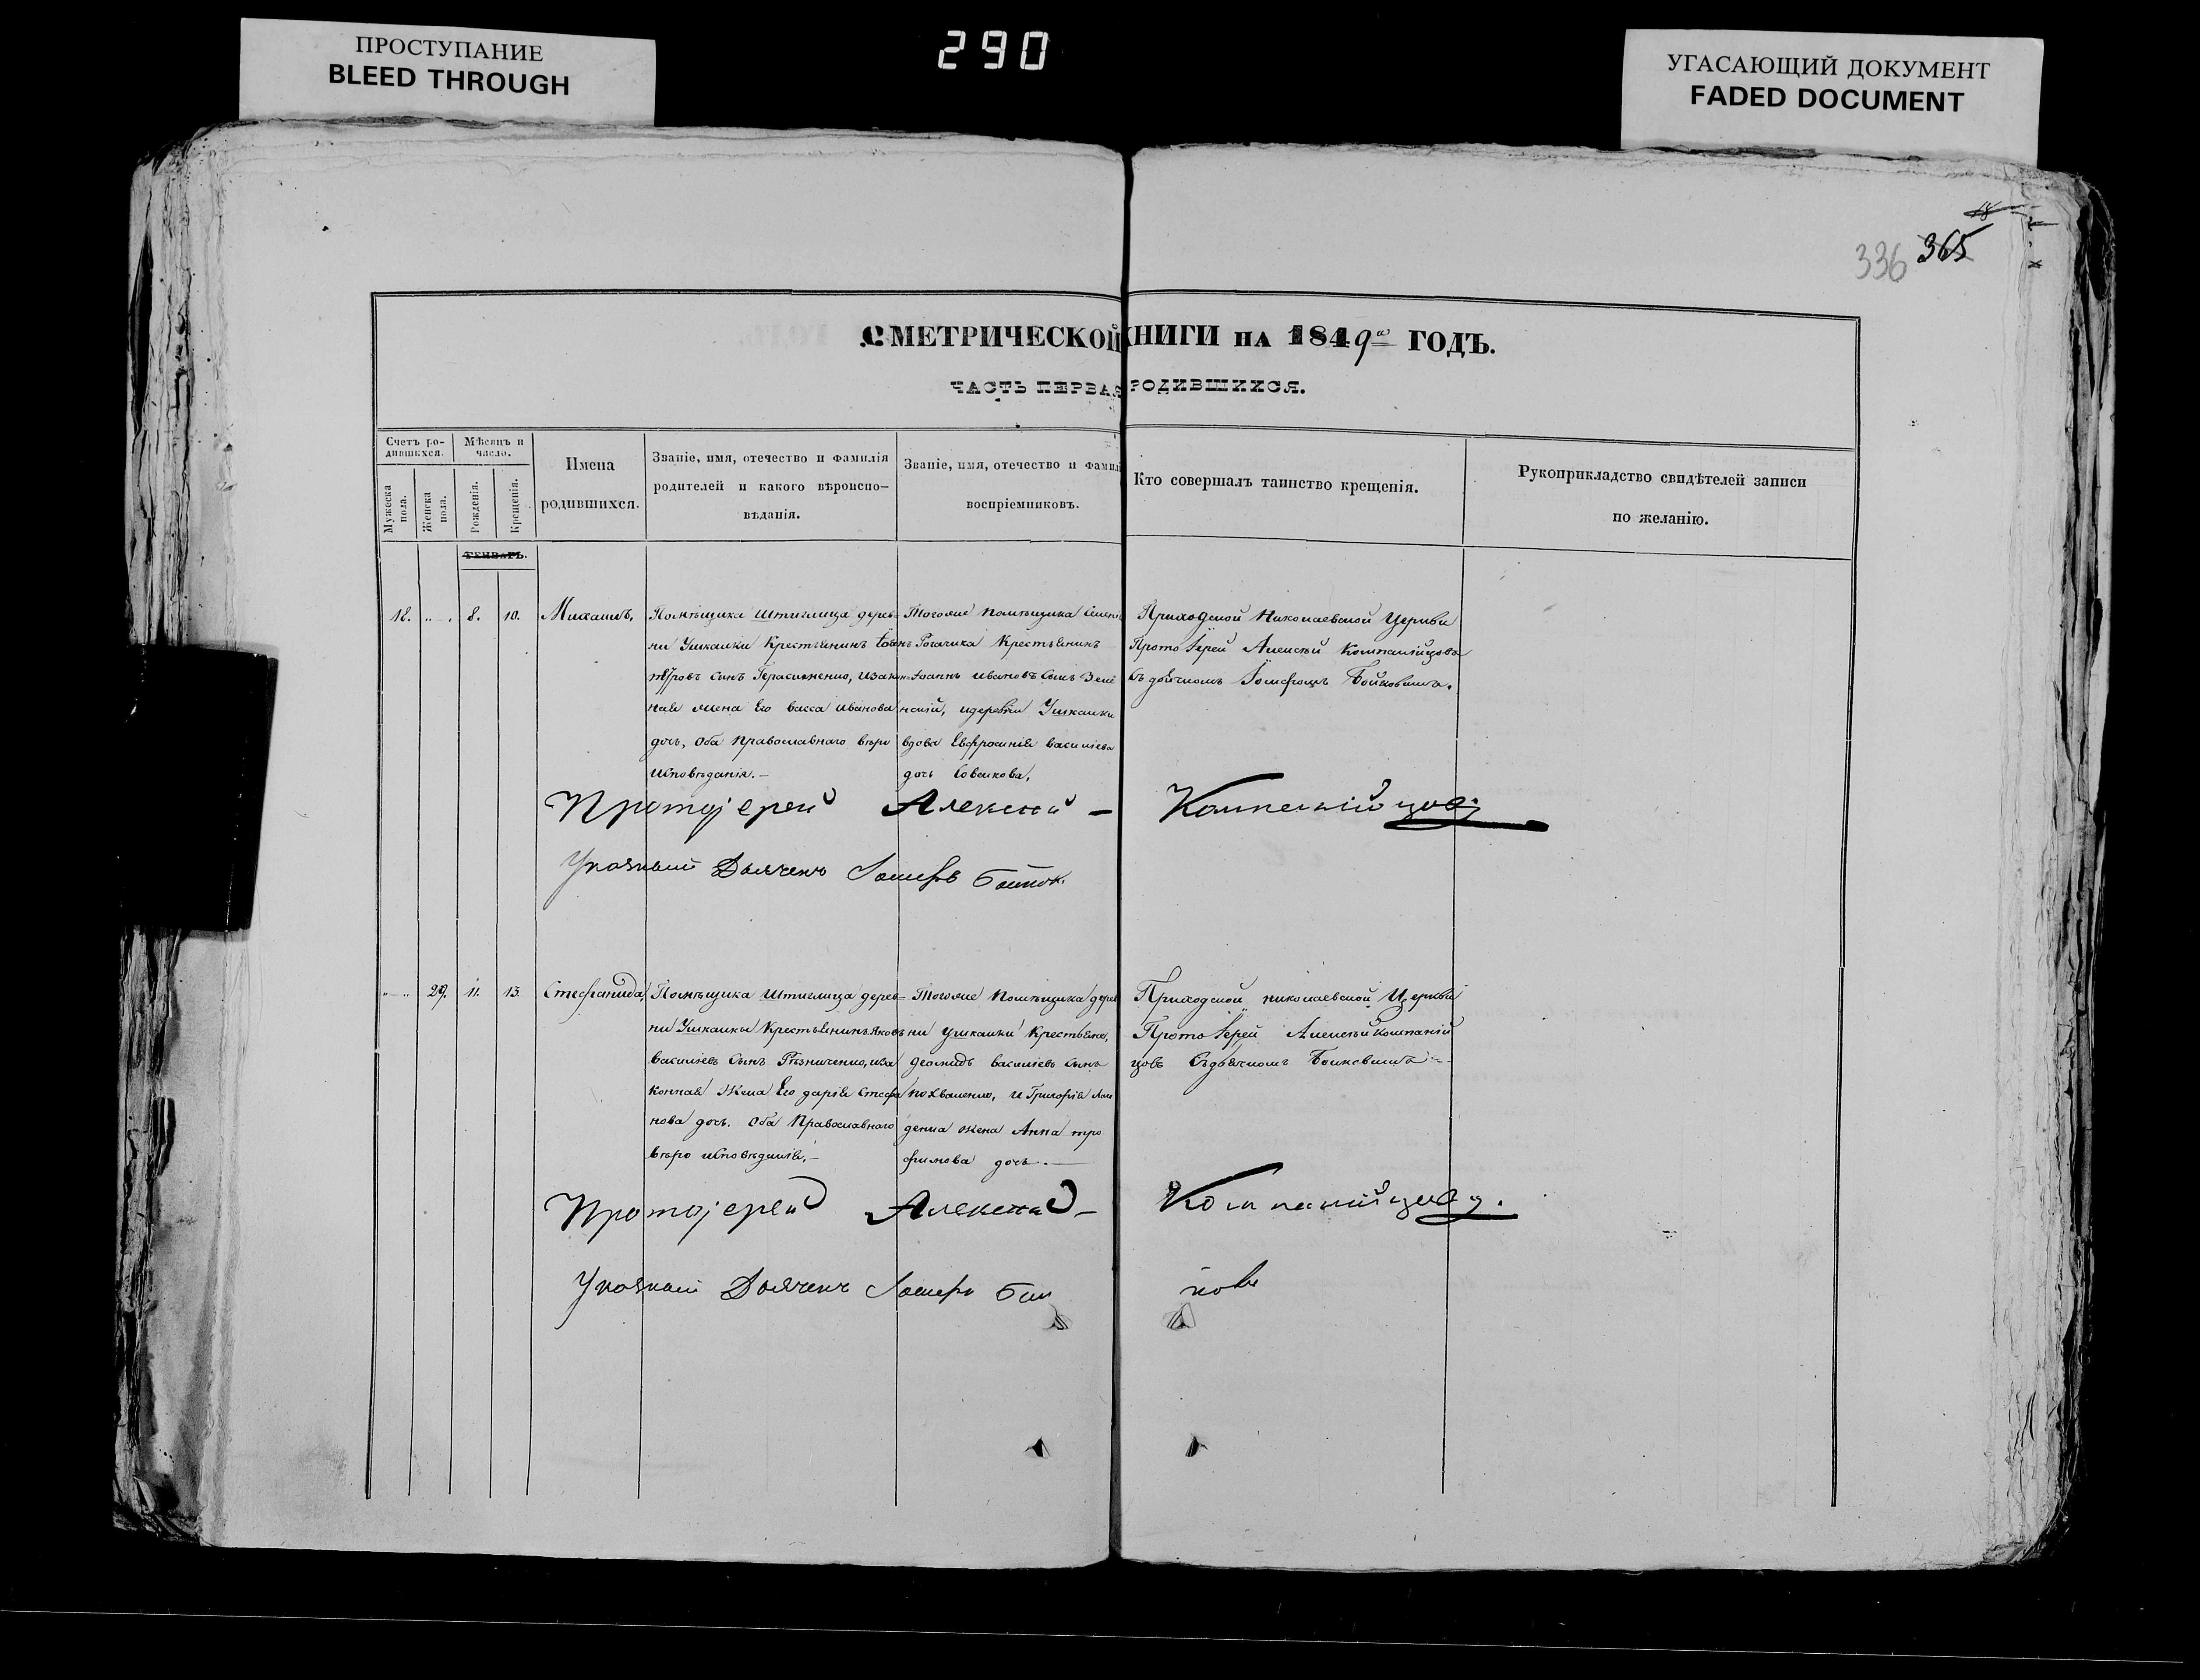 ПРОСТУПАНИЕ
BLEED THROUGH
290
УГАСАЮЩИЙ ДОКУМЕНТ
FADED DOCUMENT
336 365
МЕТРИЧЕСКОЙ КНИГИ НА 1849 ГОДЪ.
ЧАСТЬ ПЕРВАЯ РОДИВШИХСЯ.
Счетъ ро-
дившихся.
Мужеска
пола.
Женска
пола.
Мѣсяцъ и
число.
Рожденія.
Крещенія.
Имена
родившихся.
Званіе, имя, отечество и фамилія
родителей и какого вѣроиспо-
вѣданія.
Званіе, имя, отечество и фамилі
воспріемниковъ.
Кто совершалъ таинство крещенія.
Рукоприкладство свидѣтелей записи
по желанію.
ГЕНВАРЬ.
18.
8.
10.
Михаилъ,
Помѣщика Штиглица дерев
ни Ушкалки Крестьянинъ
Петровъ сынъ Герасименко, изакон
ная жена Его васса Иванова
дочь, Оба Православнаго вѣро
исповѣданія.—
Тогоже Помѣщика
Рогачика Крестьянинъ
Іоаннъ Ивановъ Сынъ
идеревни Ушкалки
вдова Евфросинія василіева
дочь
Приходской Николаевской Церкви
Прото Іерей Алексѣй Компанійцовъ
съ дьячкомъ Іосифомъ
Протоjерей Алексій — Компанійцов
Указный Дьячекъ Іосифъ
29.
11.
13.
Стефанида,
Помѣщика Штиглица дерев=
ни Ушкалки КрестьянинъЯковъ
василіевъ Сынъ Рѣзниченко, иза
конная Жена Его дарія Стефа
нова дочь. Оба Православнаго
вѣро исповѣданія,—
Тогоже Помѣщика дерев
ни Ушкалки Крестьяне,
василіевъ сынъ
Похваленко, и Григорія
жена Анна тро
фимова дочь.—
Приходской николаевской Церкви
Прото Іерей Алексѣй Компаній
цовъ Съдьячкомъ
Протоjерей Алексій — Компанійцов.
Указный Дьячекъ Іосифъ